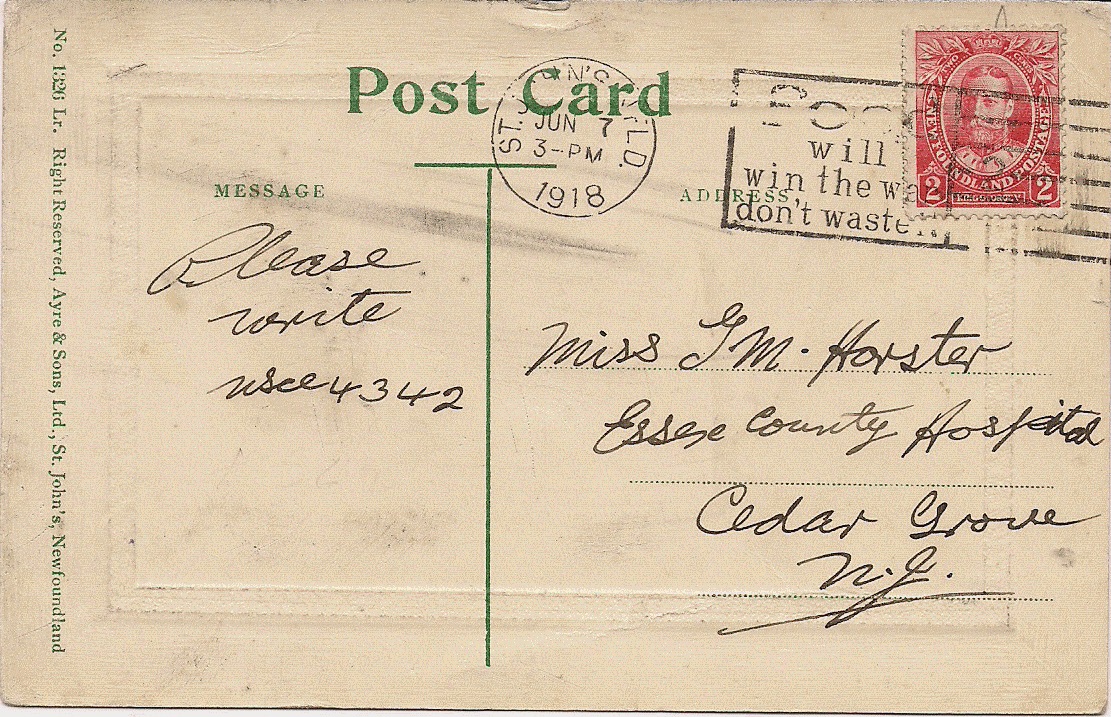 No. 1326 Lr. Right Reserved, Ayre & Sons, Ltd., St. John's, Newfoundland
Post Card
ST. JOHN'S NFLD.
JUN 7
3-PM
1918
FOOD
will
win the wa
don't waste it
NEWFOUNDLAND POSTAGE
2 2
KING GEORGE V
MESSAGE
ADDRESS
Please
write
usce 4342
Miss G M. Horster
Essex County Hospital
Cedar Grove
N.J.